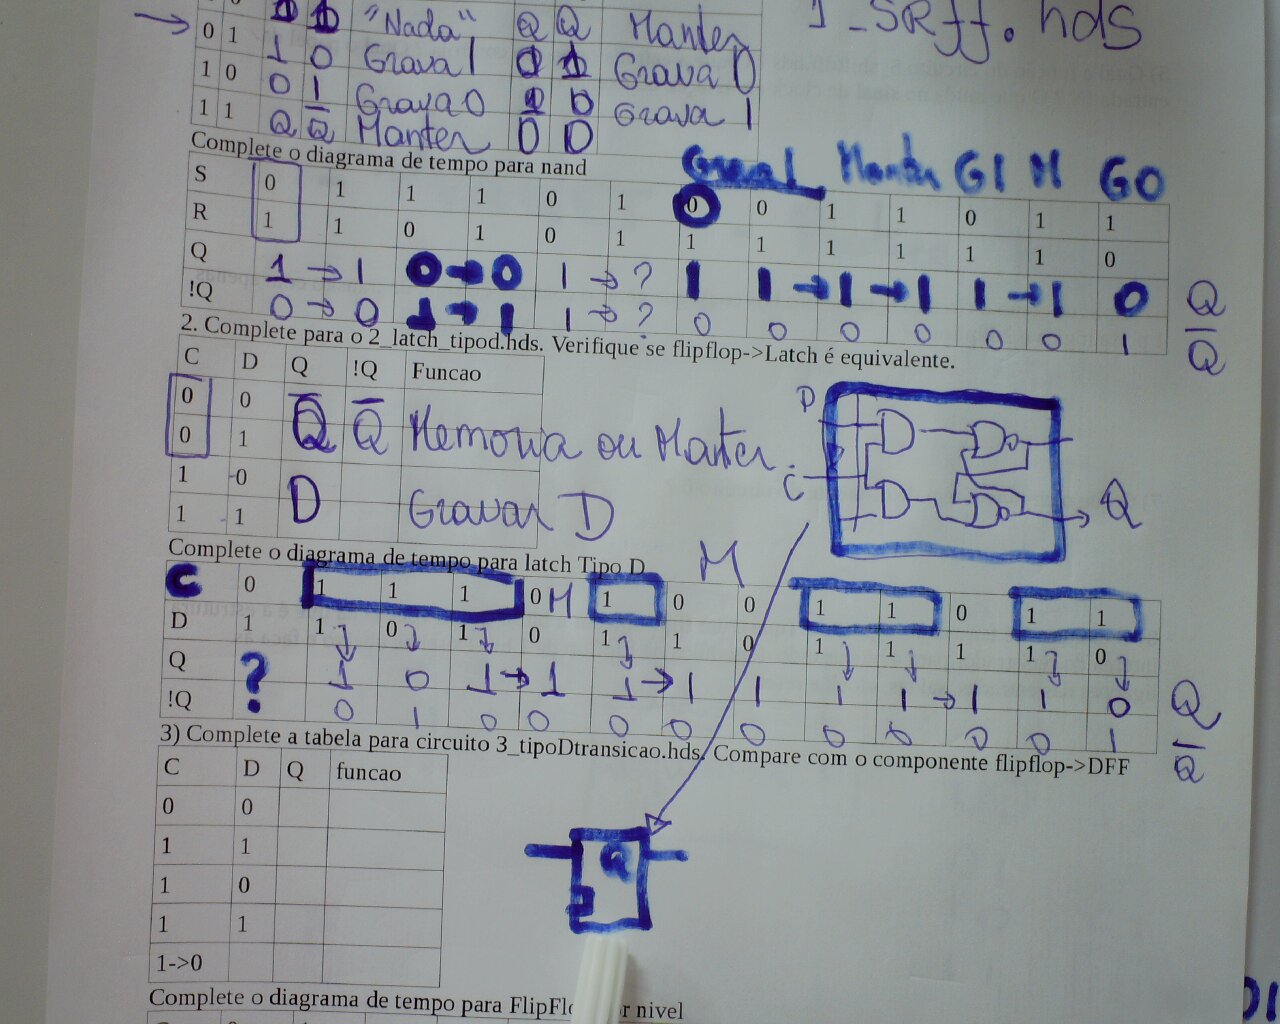 1_SRff.hds
"Nada" Q Q Manter
0 1 1 0 Grava 1 0 1 Grava 0
1 0 0 1 Grava 0 1 0 Grava 1
1 1 Q Q̅ Manter 0 0
Complete o diagrama de tempo para nand
Manter G1 M G0
S 0 1 1 1 0 1 0 0 1 1 0 1 1
R 1 1 0 1 0 1 1 1 1 1 1 1 0
Q 1 → 1 0 → 0 1 → ? 1 1 → 1 → 1 1 → 1 0 Q
!Q 0 → 0 1 → 1 1 → ? 0 0 0 0 0 0 1 Q̅
2. Complete para o 2_latch_tipod.hds. Verifique se flipflop->Latch é equivalente.
C D Q !Q Funcao
0 0
0 1 Q̅ Q̅ Memoria ou Manter.
1 0
1 1 D Gravar D
D
C
Q
Complete o diagrama de tempo para latch Tipo D
M
C 0 1 1 1 0 M 1 0 0 1 1 0 1 1
D 1 1 0 1 0 1 1 0 1 1 1 1 0
Q ? 1 0 1 → 1 1 → 1 1 1 1 → 1 1 0 Q
!Q 0 1 0 0 0 0 0 0 0 0 0 1 Q̅
3) Complete a tabela para circuito 3_tipoDtransicao.hds. Compare com o componente flipflop->DFF
C D Q funcao
0 0
1 1
1 0
1 1
1->0
Q
Complete o diagrama de tempo para FlipFlo r nivel